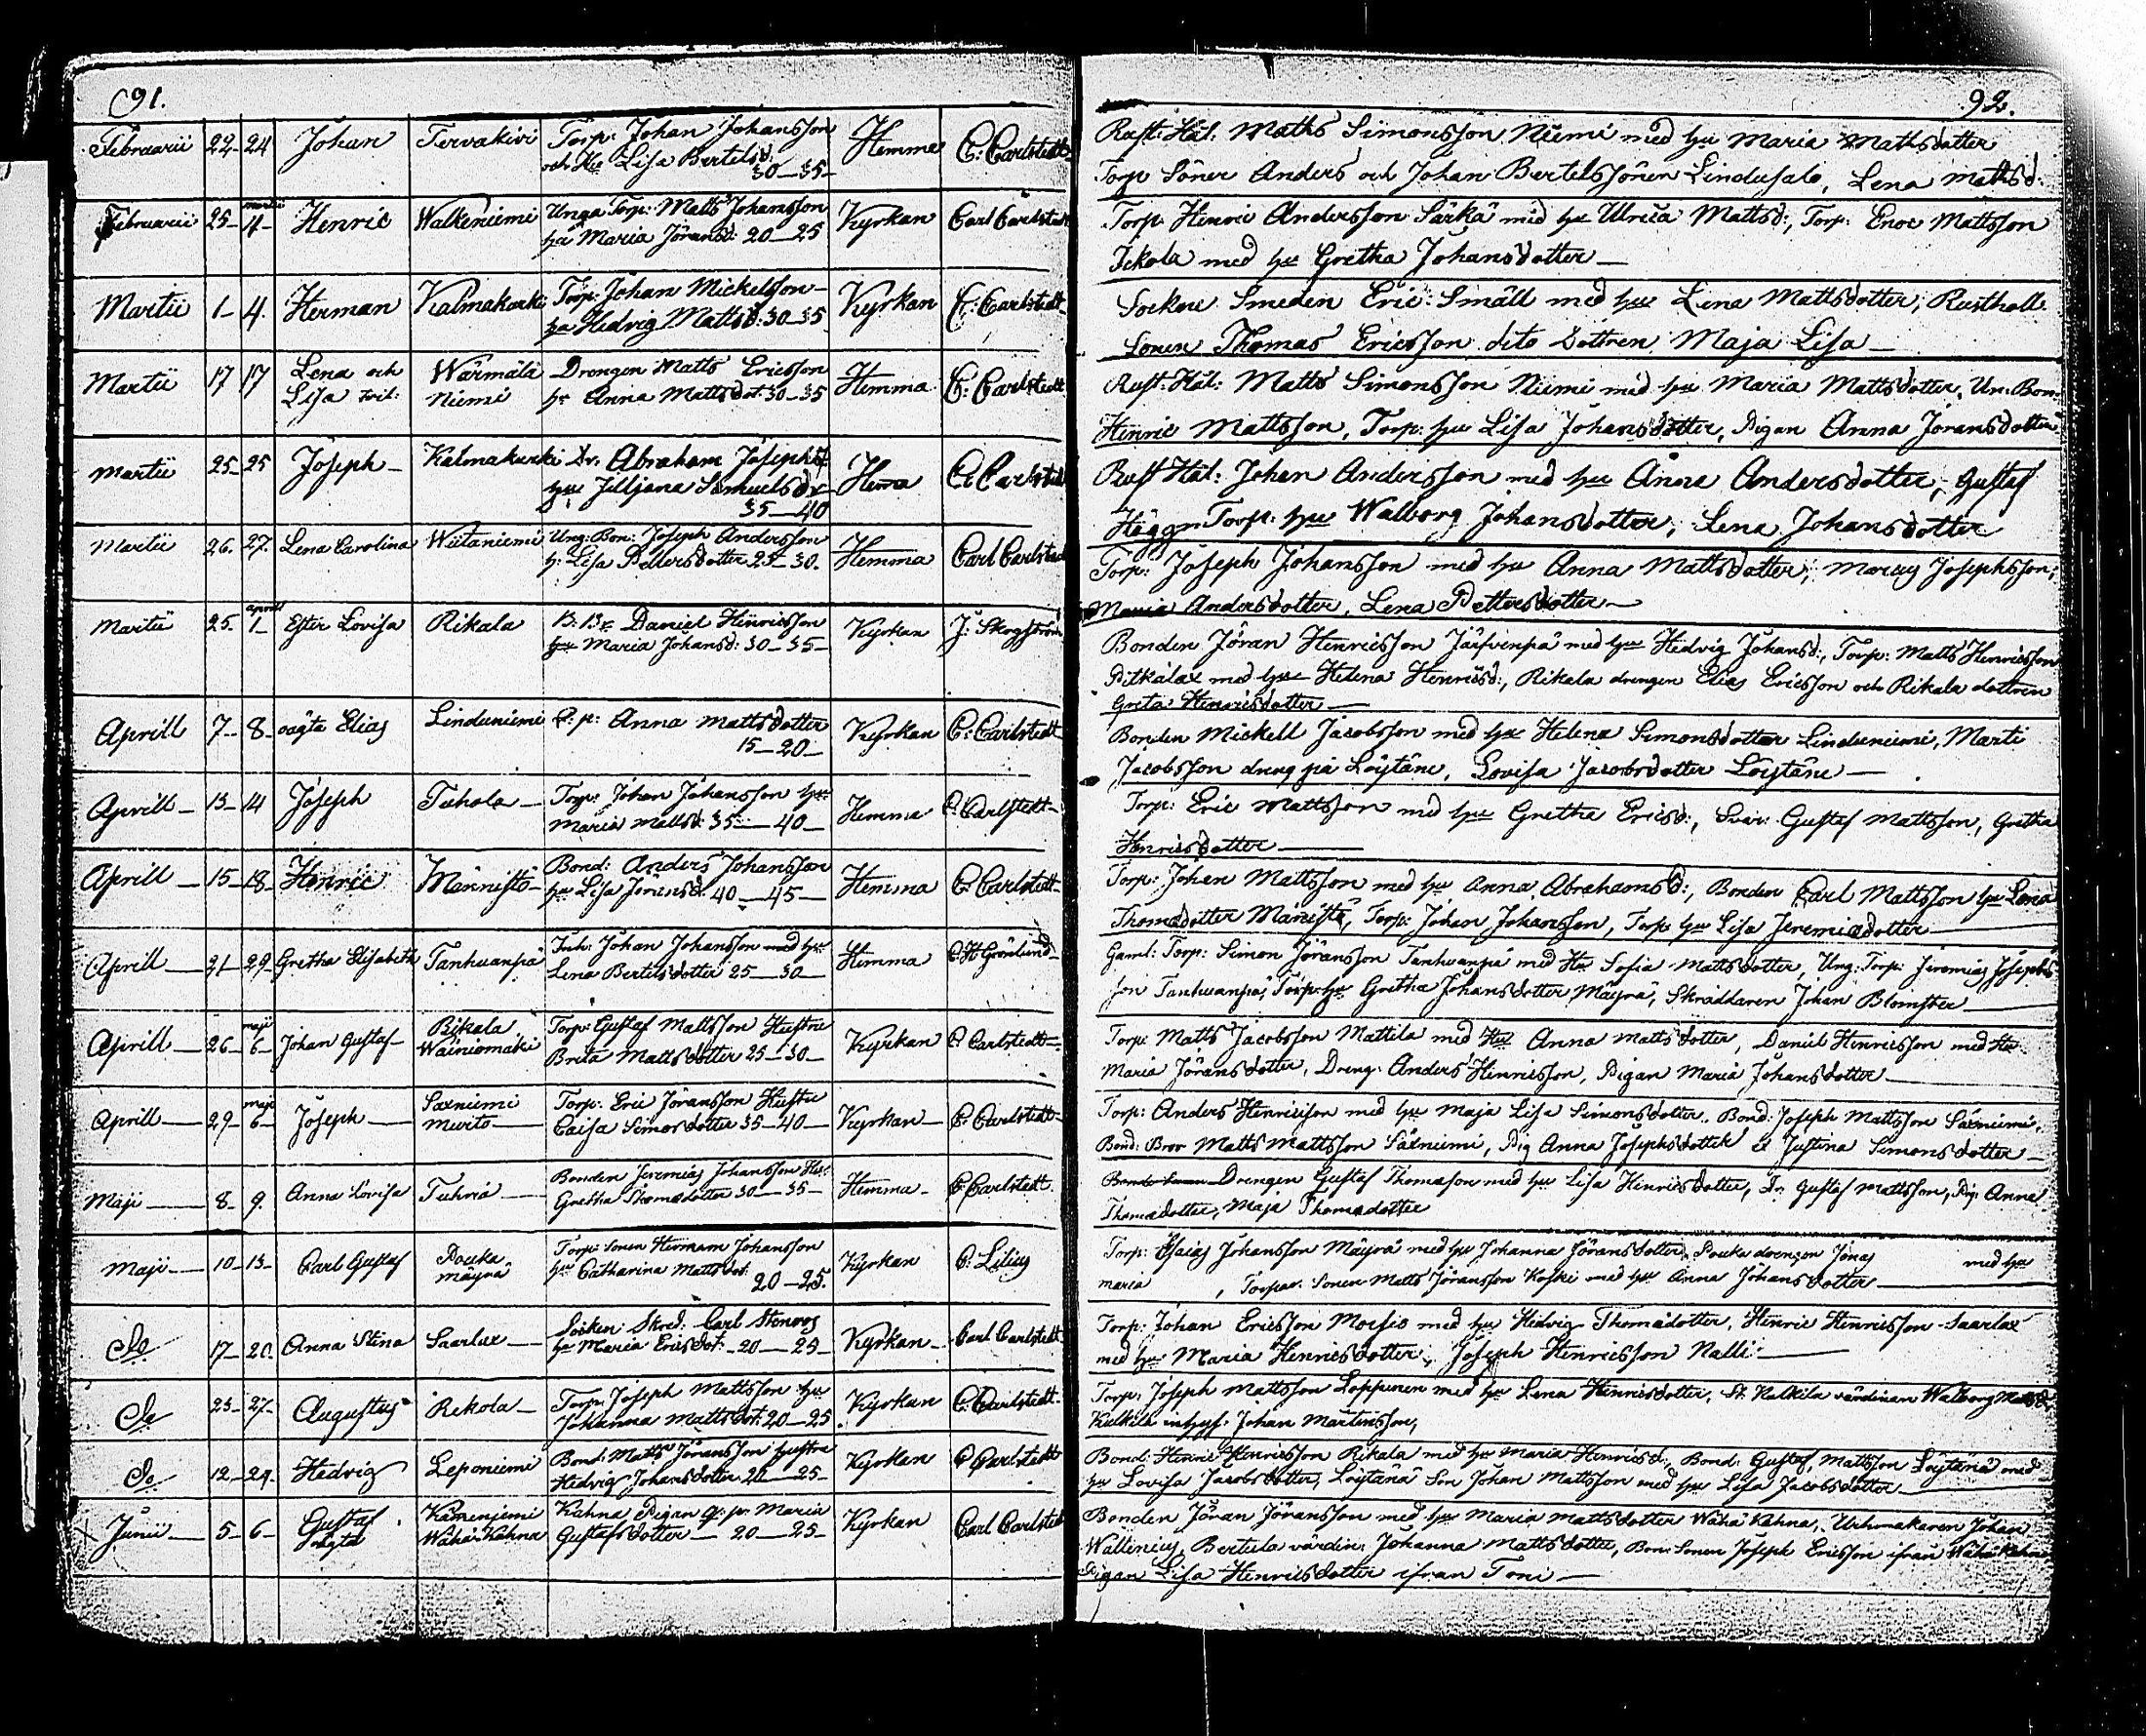 91.
Februarii 22- 24 Johan Tervakivi Torp: Johan Johansson Hemma C: Carlstedt
och Hu Lisa Bertelsd:
30-35-
martii
Februarii 25- 4- Henric Walkeniemi Unga Torp: Matts Johansson Kyrkan Carl Carlstedt
hu Maria Jöransd: 20-25
Martii 1- 4. Herman Kalmakurki Torp: Johan Mickelsson- Kyrkan C: Carlstedt
hu Hedvig Mattsd: 30-35
Martii 17 17 Lena och Wärmälä Drengen Matts Ericsson Hemma C: Carlstedt
Lisa tvil: Niemi hu Anna Mattsdot: 30-35
Martii 25- 25 Joseph- Kalmakurki Dr. Abraham Josephs Hema C: Carlstedt
hu Jilljana Samuelsdr
35-40
Martii 26. 27. Lena Carolina Wiitaniemi Ung: Bon: Joseph Andersson Hemma Carl Carlstedt
h: Lisa Pettersdotter 25-30.
aprill
Martii 25- 1- Ester Lovisa Rikala B: Br Daniel Hinricsson Kyrkan J: Skogström
hu Maria Johansd: 30-35-
Aprill 7- 8- oägta Elias Linduniemi Q: p: Anna Mattsdotter Kyrkan C: Carlstedt
15-20-
Aprill- 13- 14 Joseph Tuhola- Torp: Johan Johansson hu Hemma C: Carlstedt-
Maria Mattsd: 35-40-
Aprill- 15- 18- Hinric Männistö- Bond: Anders Johansson Hemma C Carlstedt-
hu Lisa Jöransd: 40-45-
Aprill- 21- 29 Gretha Elisabeth Tanhuanpä Inh: Johan Johansson med hu Hemma C H Grönlund-
Lena Bertelsdotter 25-30-
maji
Aprill- 26- 6- Johan Gustaf- Rikala Torp: Gustaf Mattsson Hustru Kyrkan C. Carlstedt-
Wäiniomäki Brita Mattsdotter 25-30-
maji
Aprill- 29- 6- Joseph- Saxniemi Torp: Eric Jöransson Hustru Kyrkan- C. Carlstedt-
Murto- Caisa Simonsdotter 35-40-
Maji- 8- 9. Anna Lovisa Tuhria- Bonden Jeremias Johansson Hu: Hemma- C Carlstedt.
Gretha Thomedotter 30-35-
Maji- 10- 13- Carl Gustaf Pouka Torp: Sonen Herman Johansson Kyrkan C: Lilius
mäyrä hu Catharina Mattsdot:
20-25.
Do 17- 20. Anna Stina Saarlax- Socken Skred: Carl Stenroos Kyrkan- Carl Carlstedt
hu Maria Ericsdot: 20-25-
Do 23- 27- Augustus Rekola- Torp: Joseph Mattsson hu Kyrkan C: Carlstedt-
Johanna Mattsdot: 20-25
Do 12- 29- Hedvig Leponiemi Bond: Matts Jöransson hustru Kyrkan C Carlstedt
Hedvig Johansdotter 20-25-
Junii- 5- 6- Gustaf Kamenjemi Kahna Pigan q: p: Maria Kyrkan Carl Carlstedt
oägta Wähä Kahna Gustafsdotter- 20-25-
92.
Rust: Hål: Matts Simonsson Niemi med hu Maria Mathsdotter
Torp Söner Anders och Johan Bertelssöner Lindusalo, Lena Mathsd:
Torp. Henric Andersson Särkä med hu Ulrica Mattsd:, Torp: Enoc Mattsson
Jckola med hu Gretha Johansdotter-
Sockne Smeden Eric Smäll med hu Lena Mattsdotter, Rusthåll.
Sonen Thomas Ericsson dito Dottren Maja Lisa-
Rust: Hål: Matts Simonsson Niemi med hu Maria Mattsdotter, Un: Bon:
Hinric Mattsson, Torp: hu Lisa Johansdotter, Pigan Anna Jöransdotter
Rust Hål: Johan Andersson med hu Anna Andersdotter, Gustaf
Hägg Torp: hu Walborg Johansdotter, Lena Johansdotter
Torp: Joseph Johansson med hu Anna Mattsdotter, Marcus Josephsson,
Maria Andersdotter, Lena Pettersdotter-
Bonden Jöran Henricsson Järfvenpä med hu Hedvig Johansd:, Torp: Matts Henricsson
Pitkälax med hu Helena Henricsd:, Rikala drengen Elias Ericsson och Rikala dottren
Greta Henricsdotter-
Bonden Mickell Jacobsson med hu Helena Simonsdotter Linduniemi, Marti
Jacobsson dreng på Löytäne, Lovisa Jacobsdotter Löytäne-
Torp: Eric Mattsson med hu Gretha Ericsd:, Svär: Gustaf Mattsson, Gretha
Henricsdotter-
Torp: Johan Mattsson med hu Anna Abrahamsd:, Bonden Carl Mattsson hu Lena
Thomedotter Mänistö, Torp: Johan Johansson, Torp hu Lisa Jeremiedotter-
Gaml: Torp: Simon Jöransson Tanhuanpä med Hu Sofia Mattsdotter, Ung: Torp: Jeremias Josephs
son Tanhuanpä, Torp: hu Gretha Johansdotter Mäyrä, Skräddaren Johan Blomster-
Torp: Matts Jacobsson Mattila med Hu Anna Mattsdotter, Daniel Henricsson med Hu
Maria Jöransdotter, Dreng: Anders Hinricsson, Pigan Maria Johansdotter-
Torp: Anders Henricsson med hu Maja Lisa Simonsdotter, Bond: Joseph Mattsson Saxniemi,
Bond: Bror Matts Mattsson Saxniemi, Pig Anna Josephsdotter et Justina Simonsdotter-
Drengen Gustaf Thomasson med hu Lisa Hinricsdotter, Dr: Gustaf Mattsson, Pig: Anna
Thomedotter, Maja Thomedotter
Torp: Esaias Johansson Mäyrä med hu Johanna Jöransdotter, Pouka drengen Jonas med hu
Maria , Torpar. Sonen Matts Jöransson Koski med hu Anna Johansdotter-
Torp: Johan Ericsson Moisio med hu Hedvig Thomedotter, Hinric Hinricsson Saarlax
med hu Maria Henricsdotter, Joseph Henricsson Nalli-
Torp: Joseph Mattsson Loppunen med hu Lena Henricsdotter, St. Kulkila värdinan Walborg Mattsd:
Kulkila inhys: Johan Mårtensson,
Bond: Hinric Henricsson Rikala med hu Maria Henricsd:, Bond: Gustaf Mattsson Löytänä med
hu Lovisa Jacobsdotter, Löytänä Son Johan Mattsson med hu Lisa Jacobsdotter-
Bonden Jöran Jöransson med hu Maria Mattsdotter Wähä Kahna, Urhmakaren Johan
Wallenius, Bertula värdin: Johanna Mattsdotter, Bon: Sonen Joseph Ericsson ifrån Wähä Kahna
Pigan Lisa Henricsdotter ifran Toni-